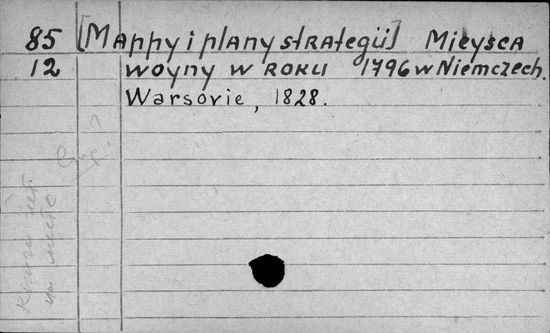 85 [Mappy i plany strategii] Mieysca
12 woyny w roku 1796 w Niemczech.
Warsovie, 1828.
?
Книги нет
на месте